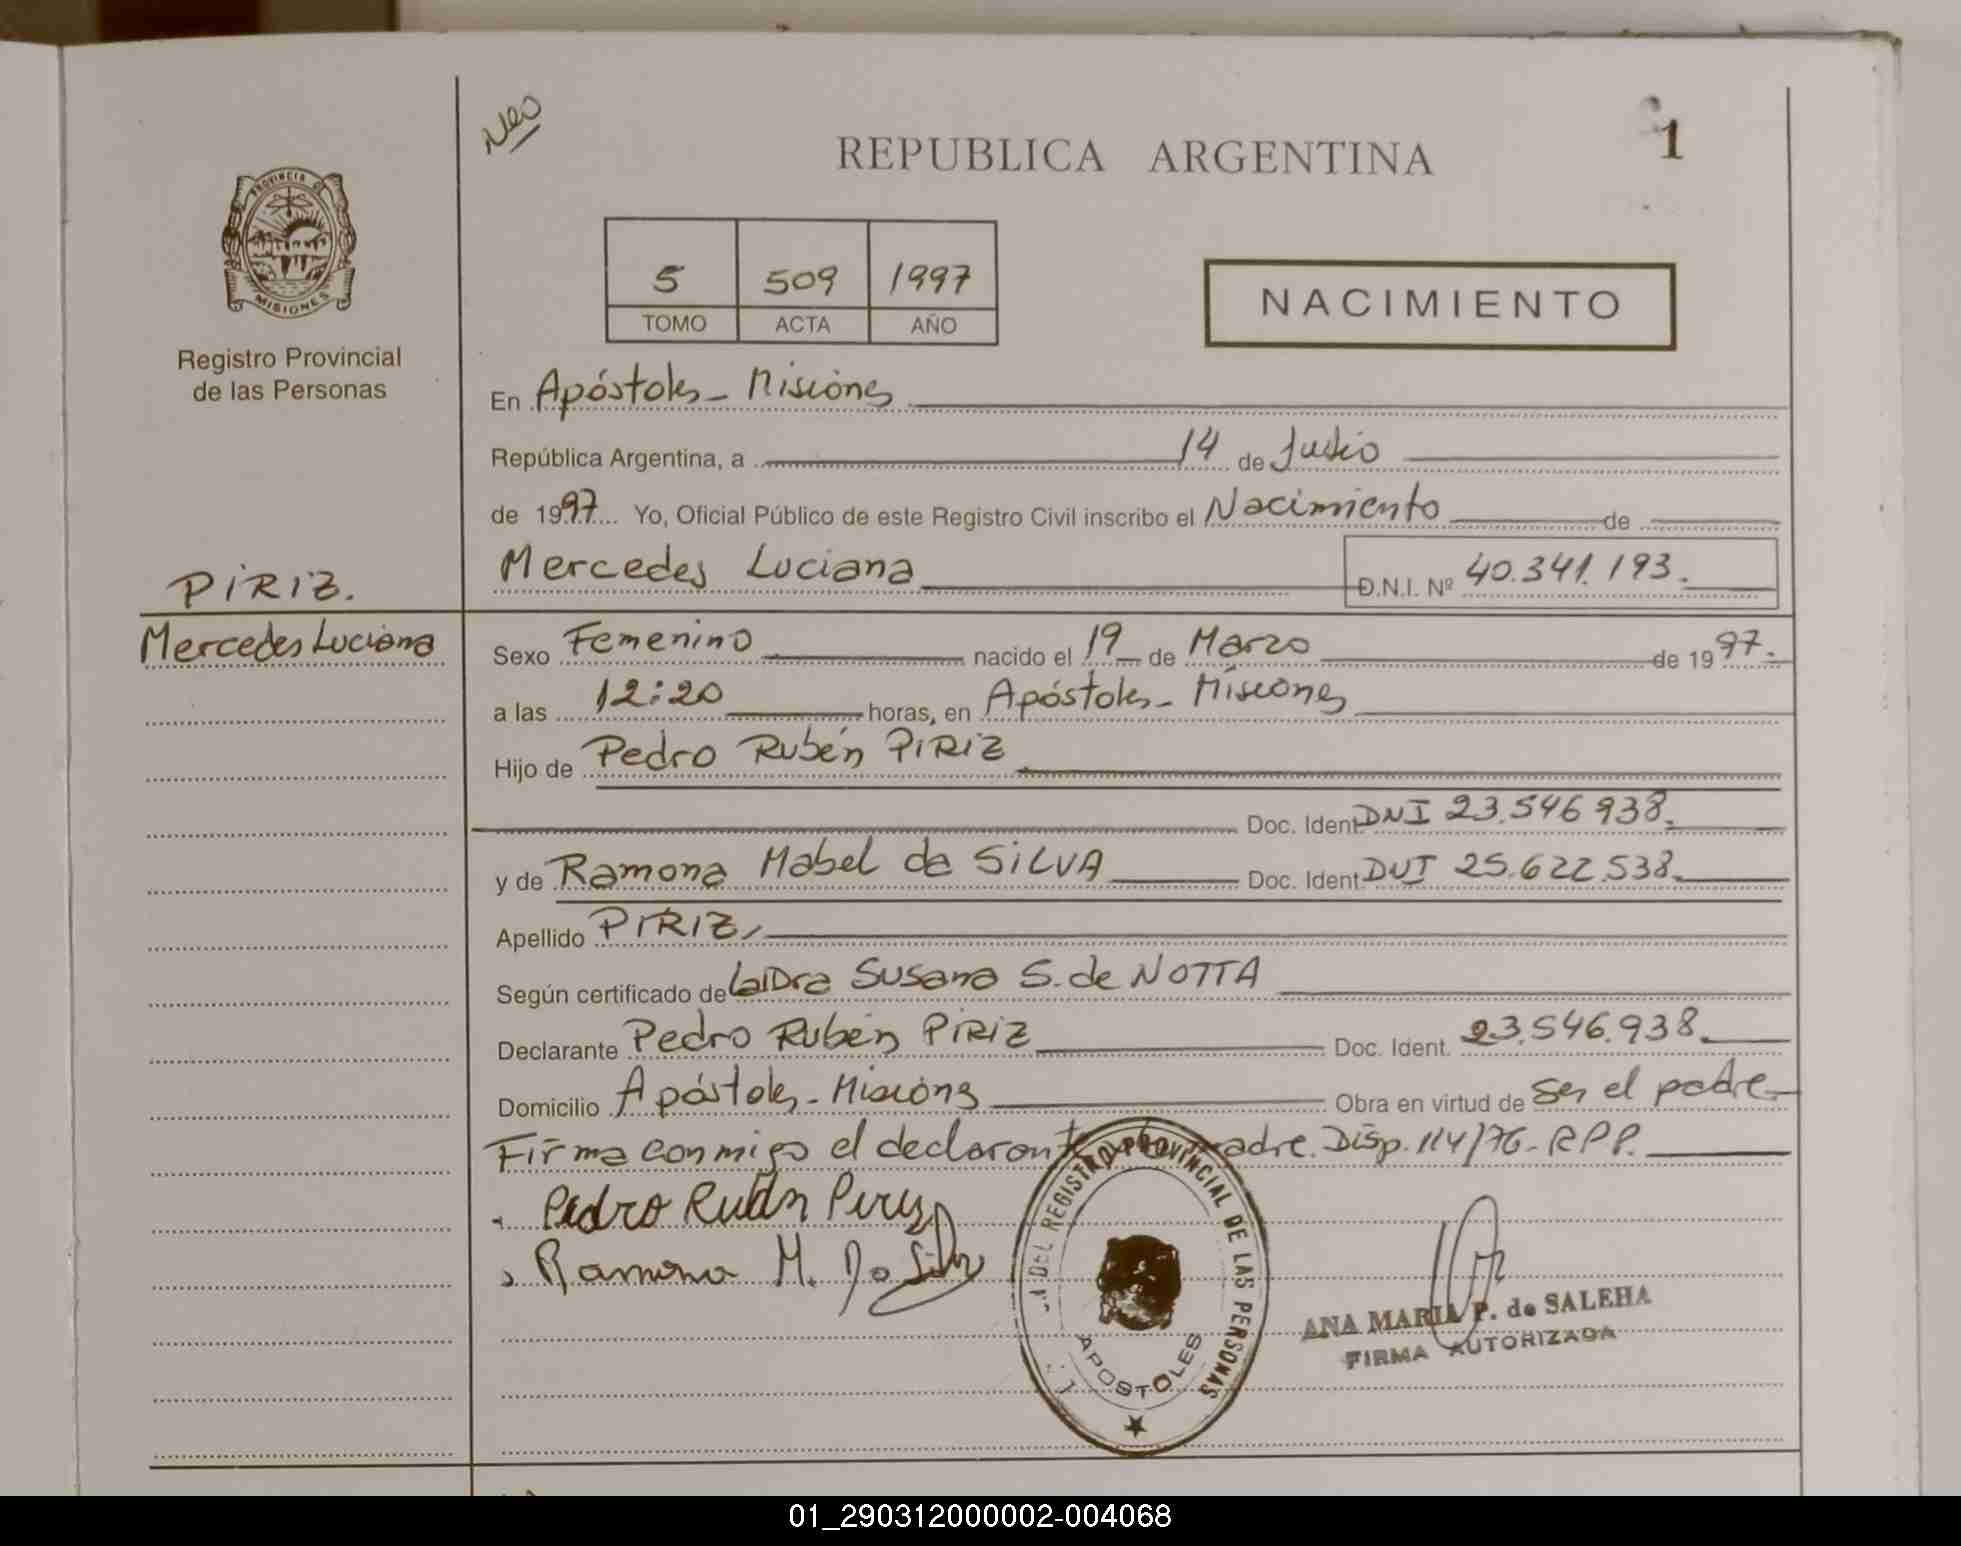 Neo
REPUBLICA ARGENTINA
1
PROVINCIA DE
MISIONES
Registro Provincial
de las Personas
5 509 1997
TOMO ACTA AÑO
NACIMIENTO
En Apóstoles - Misiones
República Argentina, a 14 de Julio
de 1997 Yo, Oficial Público de este Registro Civil inscribo el Nacimiento de
Mercedes Luciana D.N.I. Nº 40.341.193.
PIRIZ.
Mercedes Luciana
Sexo Femenino nacido el 19 de Marzo de 1997.
a las 12:20 horas, en Apóstoles - Misiones
Hijo de Pedro Rubén PIRIZ
Doc. Ident. DNI 23.546.938.
y de Ramona Mabel da SILVA Doc. Ident. DUI 25.622.538.
Apellido PIRIZ,
Según certificado de la Dra Susana S. de NOTTA
Declarante Pedro Rubén PIRIZ Doc. Ident. 23.546.938.
Domicilio Apóstoles - Misiones Obra en virtud de ser el padre
Firma conmigo el declarante madre. Disp. 114/76 - RPP.
Pedro Rubén
Ramona M. Da Silva
DEL REGISTRO PROVINCIAL DE LAS PERSONAS
APOSTOLES
ANA MARIA P. de SALEHA
FIRMA AUTORIZADA
01_290312000002-004068